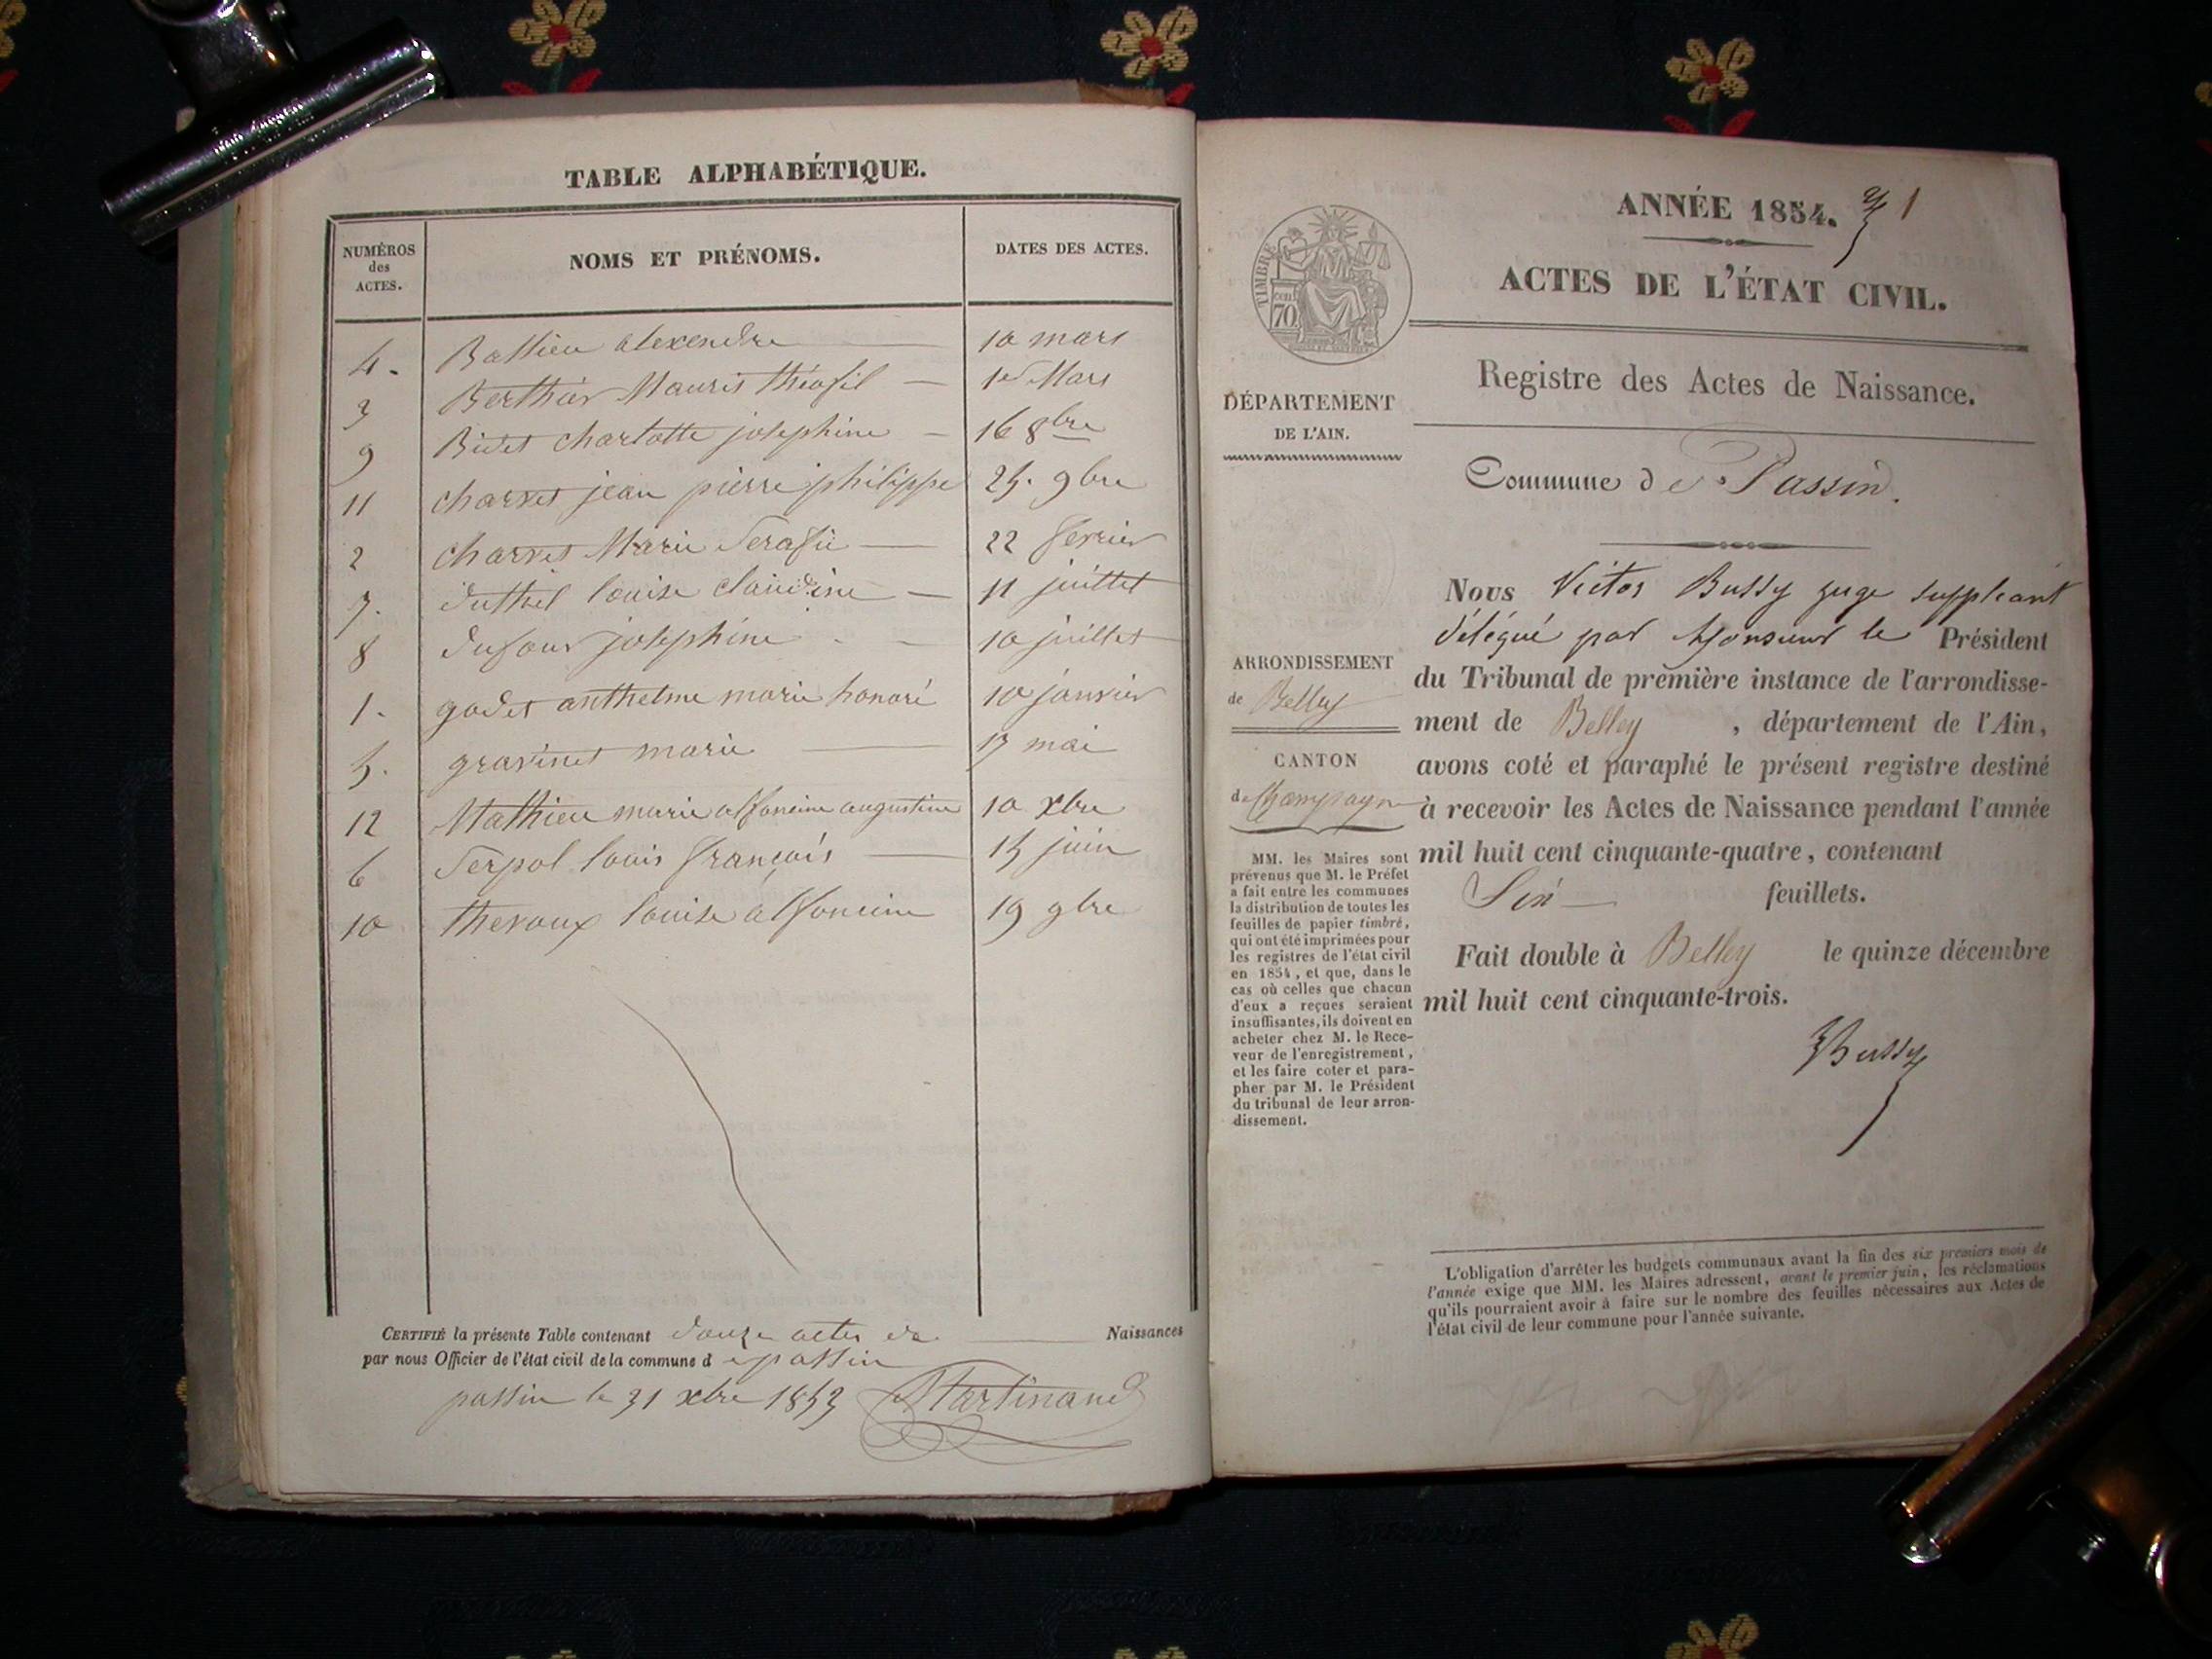 TABLE ALPHABÉTIQUE.
NUMÉROS des ACTES.
NOMS ET PRÉNOMS.
DATES DES ACTES.
4. Bassieu alexendre 10 mars
3 Berthier Mauris théofil 1er Mars
9 Bidet charlotte josephine 16 8bre
11 charvet jean pierre philippe 25. 9bre
2 charvet Marie Serafie 22 fevrier
7. duthil louise claudine 11 juillet
8 dufour josephine 10 juillet
1. godet anthelme marie honoré 10 janvier
5. gravinet marie 17 mai
12 Mathieu marie alfoncine augustine 10 xbre
6 Serpol louis françois 15 juin
10 thevoux louise alfoncine 19 9bre
CERTIFIÉ la présente Table contenant douze actes de Naissances
par nous Officier de l'état civil de la commune de passin
passin le 31 xbre 1853 Martinand
ANNÉE 1854. 1
ACTES DE L'ÉTAT CIVIL.
TIMBRE
70
Registre des Actes de Naissance.
DÉPARTEMENT
DE L'AIN.
Commune de Passin.
ARRONDISSEMENT
de Belley
CANTON
de Champagne
MM. les Maires sont
prévenus que M. le Préfet
a fait entre les communes
la distribution de toutes les
feuilles de papier timbré,
qui ont été imprimées pour
les registres de l'état civil
en 1854, et que, dans le
cas où celles que chacun
d'eux a reçues seraient
insuffisantes, ils doivent en
acheter chez M. le Rece-
veur de l'enregistrement,
et les faire coter et para-
pher par M. le Président
du tribunal de leur arron-
dissement.
Nous Victor Bussy juge suppleant
délégué par Monsieur le Président
du Tribunal de première instance de l'arrondisse-
ment de Belley, département de l'Ain,
avons coté et paraphé le présent registre destiné
à recevoir les Actes de Naissance pendant l'année
mil huit cent cinquante-quatre, contenant
Six feuillets.
Fait double à Belley le quinze décembre
mil huit cent cinquante-trois.
Bussy
L'obligation d'arrêter les budgets communaux avant la fin des six premiers mois de
l'année exige que MM. les Maires adressent, avant le premier juin, les réclamations
qu'ils pourraient avoir à faire sur le nombre des feuilles nécessaires aux Actes de
l'état civil de leur commune pour l'année suivante.